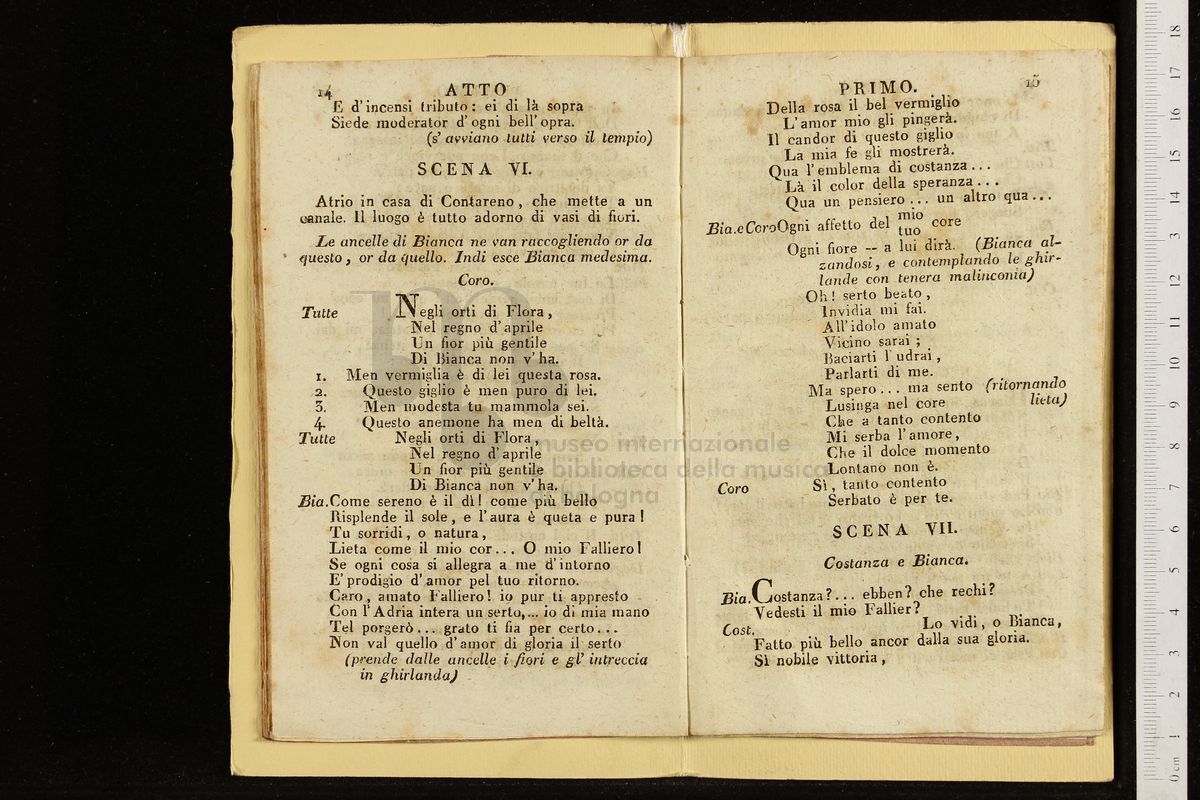 14 ATTO
E d'incensi tributo: ei di là sopra
Siede moderator d'ogni bell'opra.
(s'avviano tutti verso il tempio)
SCENA VI.
Atrio in casa di Contareno, che mette a un
canale. Il luogo è tutto adorno di vasi di fiori.
Le ancelle di Bianca ne van raccogliendo or da
questo, or da quello. Indi esce Bianca medesima.
Coro.
Tutte Negli orti di Flora,
Nel regno d'aprile
Un fior più gentile
Di Bianca non v'ha.
1. Men vermiglia è di lei questa rosa.
2. Questo giglio è men puro di lei.
3. Men modesta tu mammola sei.
4. Questo anemone ha men di beltà.
Tutte Negli orti di Flora,
Nel regno d'aprile
Un fior più gentile
Di Bianca non v'ha.
Bia. Come sereno è il dì! come più bello
Risplende il sole, e l'aura è queta e pura!
Tu sorridi, o natura,
Lieta come il mio cor... O mio Falliero!
Se ogni cosa si allegra a me d'intorno
E' prodigio d'amor pel tuo ritorno.
Caro, amato Falliero! io pur ti appresto
Con l'Adria intera un serto,... io di mia mano
Tel porgerò... grato ti fia per certo...
Non val quello d'amor di gloria il serto
(prende dalle ancelle i fiori e gl' intreccia
in ghirlanda)
PRIMO. 15
Della rosa il bel vermiglio
L'amor mio gli pingerà.
Il candor di questo giglio
La mia fe gli mostrerà.
Qua l'emblema di costanza...
Là il color della speranza...
Qua un pensiero... un altro qua...
Bia. e Coro Ogni affetto del mio core
tuo
Ogni fiore -- a lui dirà. (Bianca al-
zandosi, e contemplando le ghir-
lande con tenera malinconia)
Oh! serto beato,
Invidia mi fai.
All'idolo amato
Vicino sarai;
Baciarti l'udrai,
Parlarti di me.
Ma spero... ma sento (ritornando
Lusinga nel core lieta)
Che a tanto contento
Mi serba l'amore,
Che il dolce momento
Lontano non è.
Coro Sì, tanto contento
Serbato è per te.
SCENA VII.
Costanza e Bianca.
Bia. Costanza?... ebben? che rechi?
Vedesti il mio Fallier?
Cost. Lo vidi, o Bianca,
Fatto più bello ancor dalla sua gloria.
Sì nobile vittoria,
museo internazionale
biblioteca della musica
di bologna
0 cm 1 2 3 4 5 6 7 8 9 10 11 12 13 14 15 16 17 18